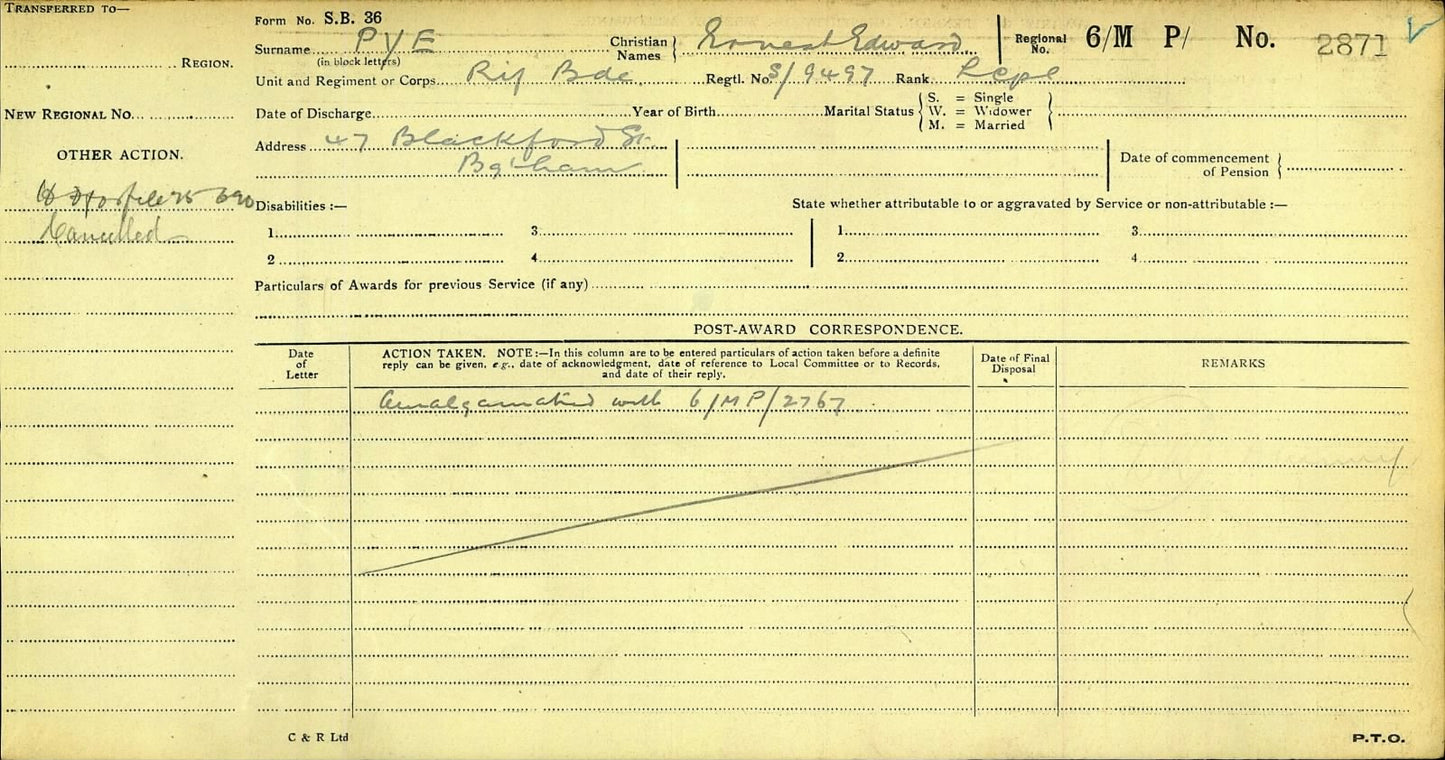 TRANSFERRED TO—
REGION.
NEW REGIONAL No.
OTHER ACTION.
Cancelled
Form No. S.B. 36
Surname PYE
(in block letters)
Christian Names } Ernest Edward
Regional No. 6/M P/ No. 2871
Unit and Regiment or Corps Rif Bde Regtl. No. S/9497 Rank LCpl
Date of Discharge Year of Birth Marital Status { S. = Single
W. = Widower
M. = Married }
Address 47 Blackford St.
Bg'ham
Date of commencement of Pension }
Disabilities :—
State whether attributable to or aggravated by Service or non-attributable :—
1 3 1 3
2 4 2 4
Particulars of Awards for previous Service (if any)
POST-AWARD CORRESPONDENCE.
Date of Letter
ACTION TAKEN. NOTE:—In this column are to be entered particulars of action taken before a definite
reply can be given, e.g., date of acknowledgment, date of reference to Local Committee or to Records,
and date of their reply.
Date of Final Disposal
REMARKS
Amalgamated with 6/MP/2767
C & R Ltd
P.T.O.